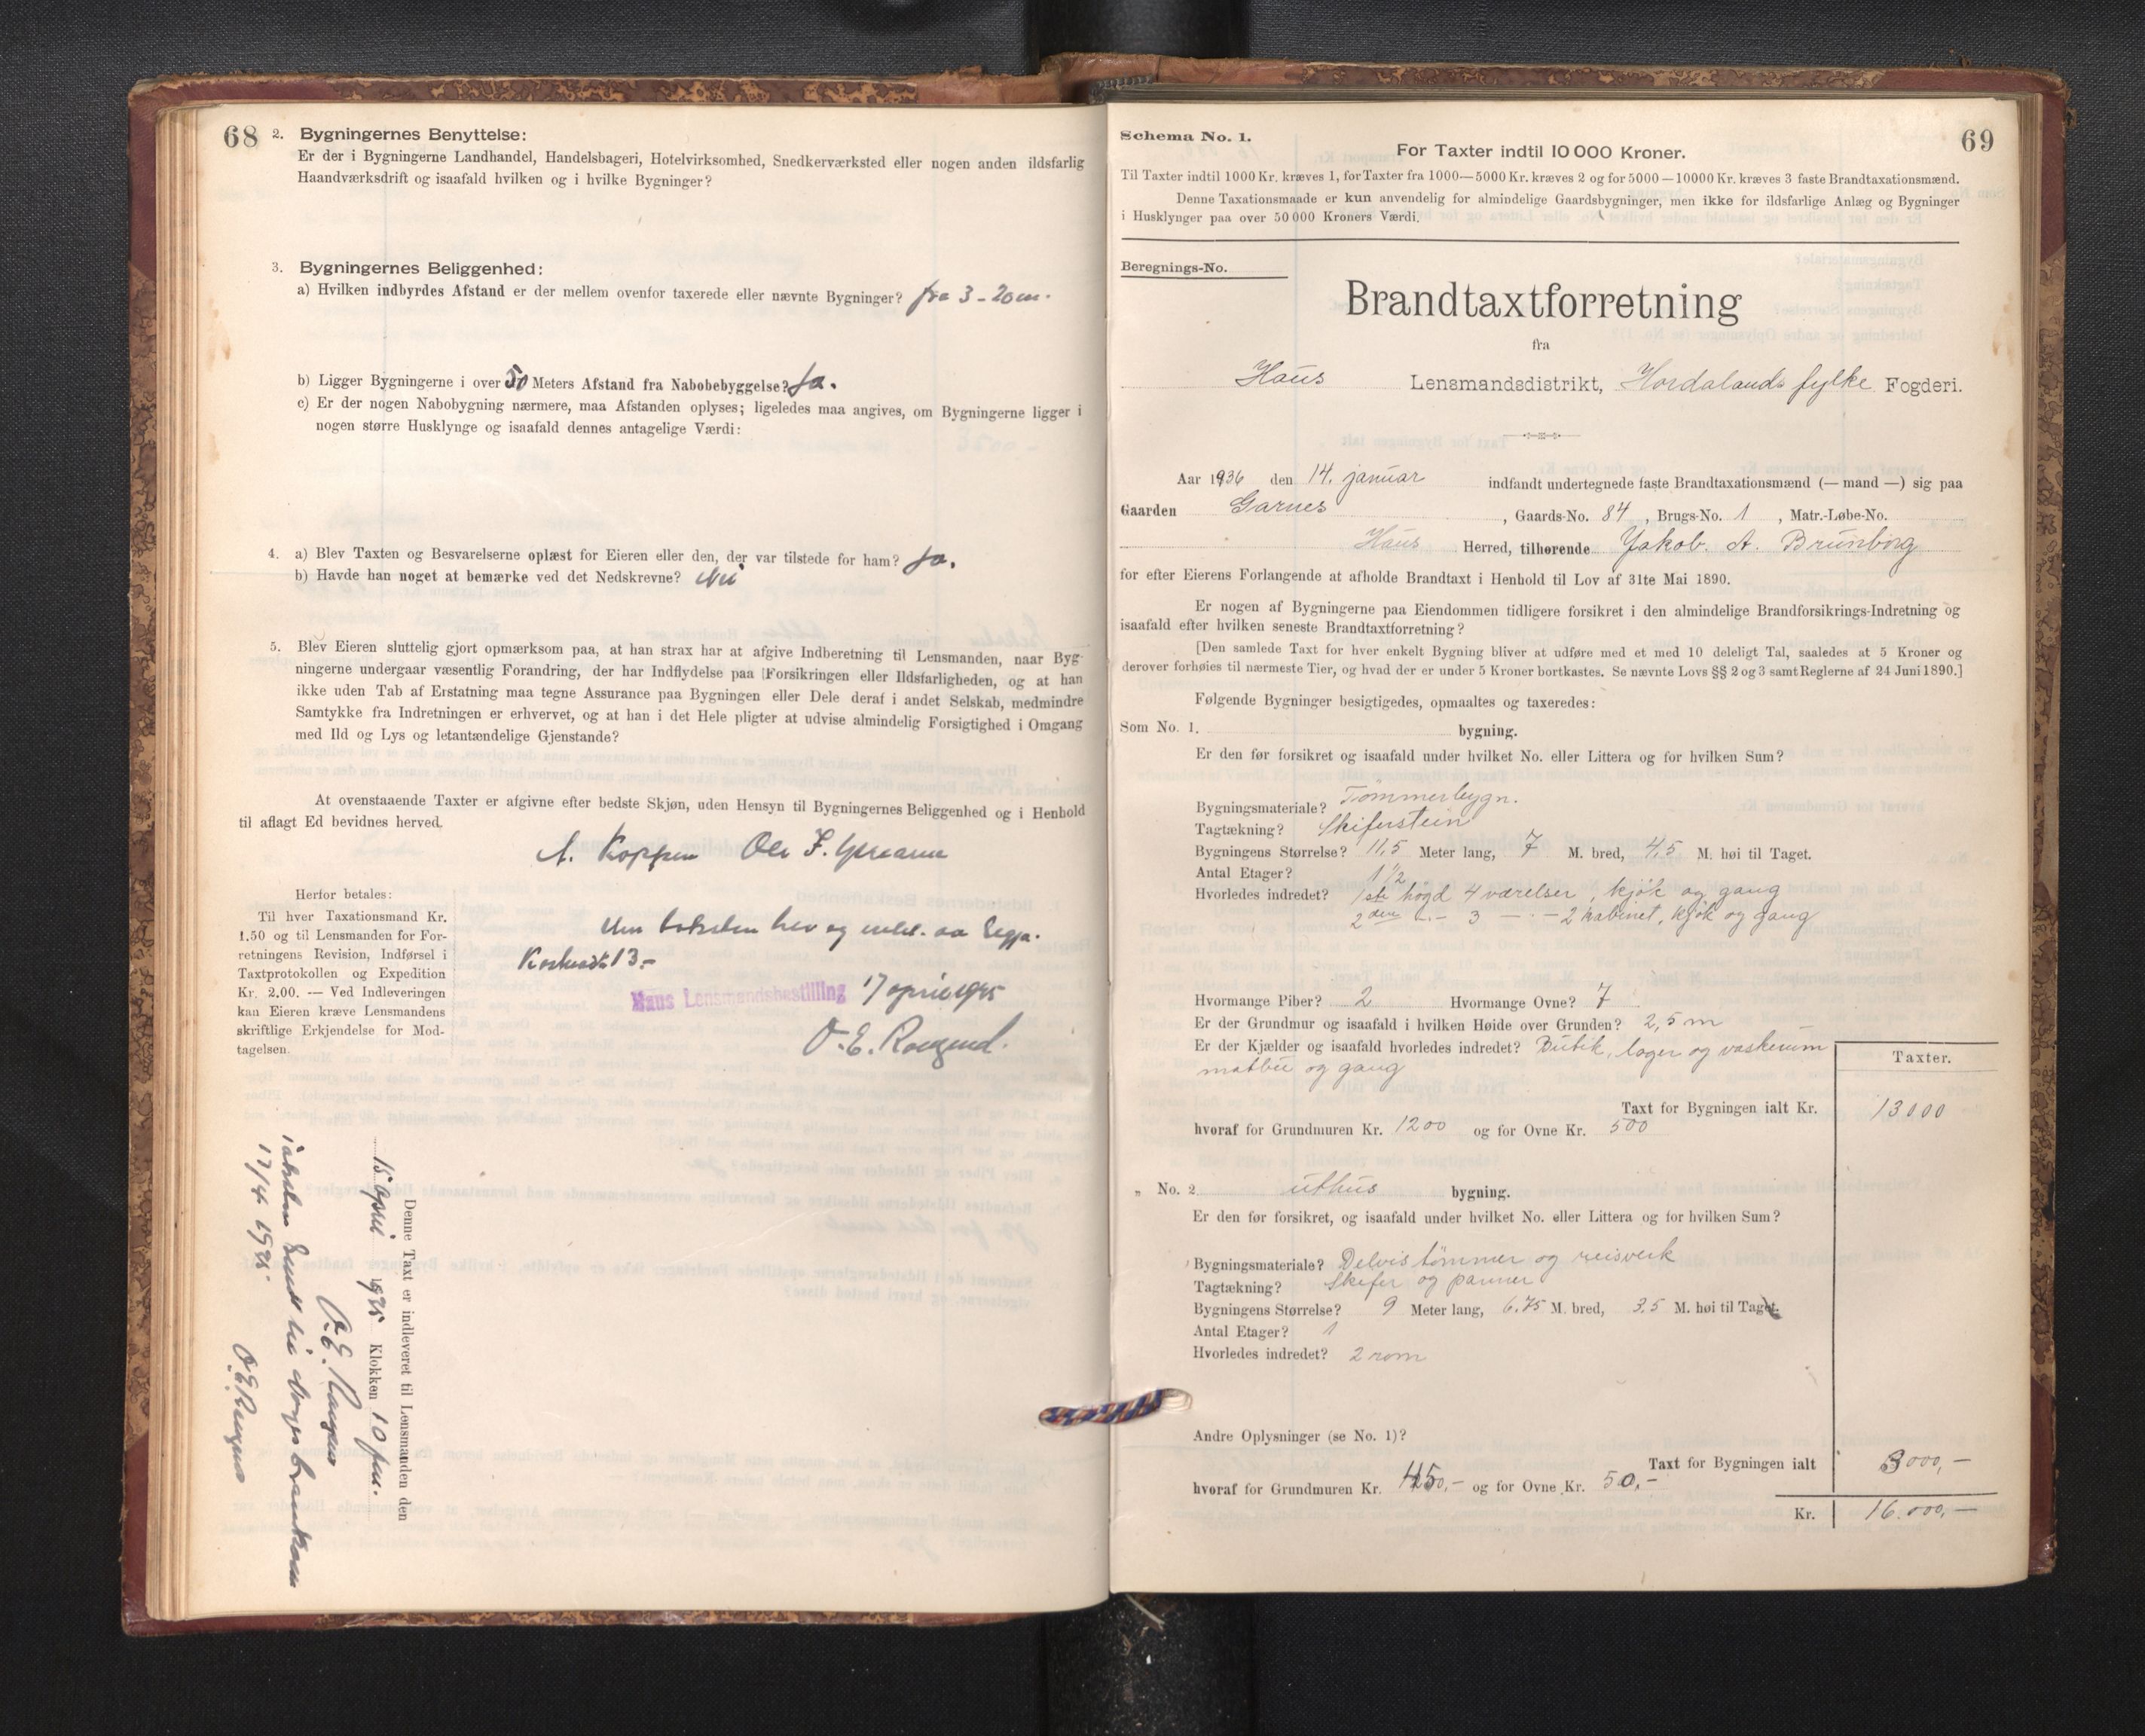 68
2. Bygningernes Benyttelse:
Er der i Bygningerne Landhandel, Handelsbageri, Hotelvirksomhed, Snedkerværksted eller nogen anden ildsfarlig
Haandværksdrift og isaafald hvilken og i hvilke Bygninger?
3. Bygningernes Beliggenhed:
a) Hvilken indbyrdes Afstand er der mellem ovenfor taxerede eller nævnte Bygninger? fra 3-20 m.
b) Ligger Bygningerne i over 50 Meters Afstand fra Nabobebyggelse? Ja.
c) Er der nogen Nabobygning nærmere, maa Afstanden oplyses; ligeledes maa angives, om Bygningerne ligger i
nogen større Husklynge og isaafald dennes antagelige Værdi:
4. a) Blev Taxten og Besvarelserne oplæst for Eieren eller den, der var tilstede for ham? Ja.
b) Havde han noget at bemærke ved det Nedskrevne? Nei
5. Blev Eieren sluttelig gjort opmærksom paa, at han strax har at afgive Indberetning til Lensmanden, naar Byg-
ningerne undergaar væsentlig Forandring, der har Indflydelse paa Forsikringen eller Ildsfarligheden, og at han
ikke uden Tab af Erstatning maa tegne Assurance paa Bygningen eller Dele deraf i andet Selskab, medmindre
Samtykke fra Indretningen er erhvervet, og at han i det Hele pligter at udvise almindelig Forsigtighed i Omgang
med Ild og Lys og letantændelige Gjenstande?
At ovenstaaende Taxter er afgivne efter bedste Skjøn, uden Hensyn til Bygningernes Beliggenhed og i Henhold
til aflagt Ed bevidnes herved.
A. Koppen Ole F.
Herfor betales:
Til hver Taxationsmand Kr.
1.50 og til Lensmanden for For-
retningens Revision, Indførsel i
Taxtprotokollen og Expedition
Kr. 2.00. — Ved Indleveringen
kan Eieren kræve Lensmandens
skriftlige Erkjendelse for Mod-
tagelsen.
13.-
Haus Lensmandsbestilling 17 april 1935
O. E.
Denne Taxt er indleveret til Lensmanden den
15 april 1935 Klokken 10 fm.
O. E.
17/4 1935.
O. E.
69
Schema No. 1.
For Taxter indtil 10 000 Kroner.
Til Taxter indtil 1000 Kr. kræves 1, for Taxter fra 1000—5000 Kr. kræves 2 og for 5000—10000 Kr. kræves 3 faste Brandtaxationsmænd.
Denne Taxationsmaade er kun anvendelig for almindelige Gaardsbygninger, men ikke for ildsfarlige Anlæg og Bygninger
i Husklynger paa over 50 000 Kroners Værdi.
Beregnings-No.
Brandtaxtforretning
fra
Haus Lensmandsdistrikt, Hordalands fylke Fogderi.
Aar 1936 den 14. januar indfandt undertegnede faste Brandtaxationsmænd (— mand —) sig paa
Gaarden Garnes, Gaards-No. 84, Brugs-No. 1, Matr.-Løbe-No.
Haus Herred, tilhørende Jakob. A. Brunborg
for efter Eierens Forlangende at afholde Brandtaxt i Henhold til Lov af 31te Mai 1890.
Er nogen af Bygningerne paa Eiendommen tidligere forsikret i den almindelige Brandforsikrings-Indretning og
isaafald efter hvilken seneste Brandtaxtforretning?
[Den samlede Taxt for hver enkelt Bygning bliver at udføre med et med 10 deleligt Tal, saaledes at 5 Kroner og
derover forhøies til nærmeste Tier, og hvad der er under 5 Kroner bortkastes. Se nævnte Lovs §§ 2 og 3 samt Reglerne af 24 Juni 1890.]
Følgende Bygninger besigtigedes, opmaaltes og taxeredes:
Som No. 1. bygning.
Er den før forsikret og isaafald under hvilket No. eller Littera og for hvilken Sum?
Bygningsmateriale? Tømmerbygn.
Tagtækning? Skiferstein
Bygningens Størrelse? 11,5 Meter lang, 7 M. bred, 4,5 M. høi til Taget.
Antal Etager? 1 1/2
Hvorledes indredet? 1ste høgd 4 værelser, kjøk og gang
2den -"- 3 -"- 2 kabinet, kjøk og gang
Hvormange Piber? 2 Hvormange Ovne? 7
Er der Grundmur og isaafald i hvilken Høide over Grunden? 2,5 m
Er der Kjælder og isaafald hvorledes indredet? Butik, lager og vaskerum
matbu og gang
Taxter.
Taxt for Bygningen ialt Kr. 13000
hvoraf for Grundmuren Kr. 1200 og for Ovne Kr. 500
„ No. 2 uthus bygning.
Er den før forsikret, og isaafald under hvilket No. eller Littera og for hvilken Sum?
Bygningsmateriale? Delvis tømmer og reisverk
Tagtækning? Skifer og panner
Bygningens Størrelse? 9 Meter lang, 6,75 M. bred, 3,5 M. høi til Taget.
Antal Etager? 1
Hvorledes indredet? 2 rom
Andre Oplysninger (se No. 1)?
Taxt for Bygningen ialt 3000,-
hvoraf for Grundmuren Kr. 450,- og for Ovne Kr. 50,-
Kr. 16.000,-